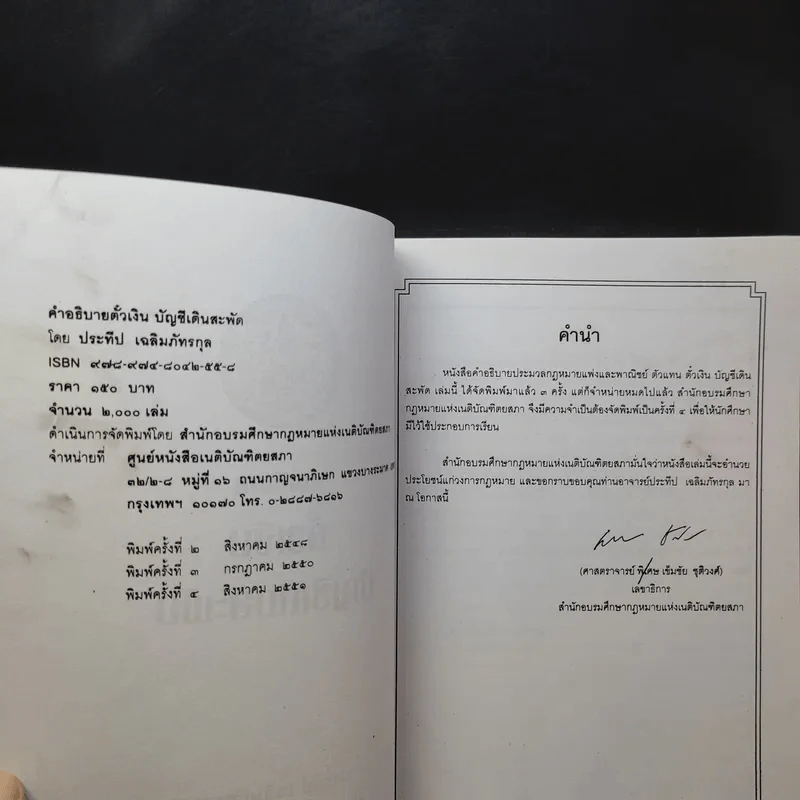 คำอธิบายตั๋วเงิน บัญชีเดินสะพัด
โดย ประทีป เฉลิมภัทรกุล
ISBN ๙๗๘-๙๗๔-๘๐๔๒-๕๕-๘
ราคา ๑๕๐ บาท
จำนวน ๒,๐๐๐ เล่ม
ดำเนินการจัดพิมพ์โดย สำนักอบรมศึกษากฎหมายแห่งเนติบัณฑิตยสภา
จำหน่ายที่ ศูนย์หนังสือเนติบัณฑิตยสภา
๓๒/๒-๘ หมู่ที่ ๑๖ ถนนกาญจนาภิเษก แขวงบางระมาด
กรุงเทพฯ ๑๐๑๗๐ โทร. ๐-๒๘๘๗-๖๘๑๖
พิมพ์ครั้งที่ ๒ สิงหาคม ๒๕๔๘
พิมพ์ครั้งที่ ๓ กรกฎาคม ๒๕๕๐
พิมพ์ครั้งที่ ๔ สิงหาคม ๒๕๕๑
คำนำ
หนังสือคำอธิบายประมวลกฎหมายแพ่งและพาณิชย์ ตัวแทน ตั๋วเงิน บัญชีเดิน
สะพัด เล่มนี้ ได้จัดพิมพ์มาแล้ว ๓ ครั้ง แต่ก็จำหน่ายหมดไปแล้ว สำนักอบรมศึกษา
กฎหมายแห่งเนติบัณฑิตยสภา จึงมีความจำเป็นต้องจัดพิมพ์เป็นครั้งที่ ๔ เพื่อให้นักศึกษา
มีไว้ใช้ประกอบการเรียน
สำนักอบรมศึกษากฎหมายแห่งเนติบัณฑิตยสภามั่นใจว่าหนังสือเล่มนี้จะอำนวย
ประโยชน์แก่วงการกฎหมาย และขอกราบขอบคุณท่านอาจารย์ประทีป เฉลิมภัทรกุล มา
ณ โอกาสนี้
(ศาสตราจารย์ พิเศษ เข็มชัย ชุติวงศ์)
เลขาธิการ
สำนักอบรมศึกษากฎหมายแห่งเนติบัณฑิตยสภา